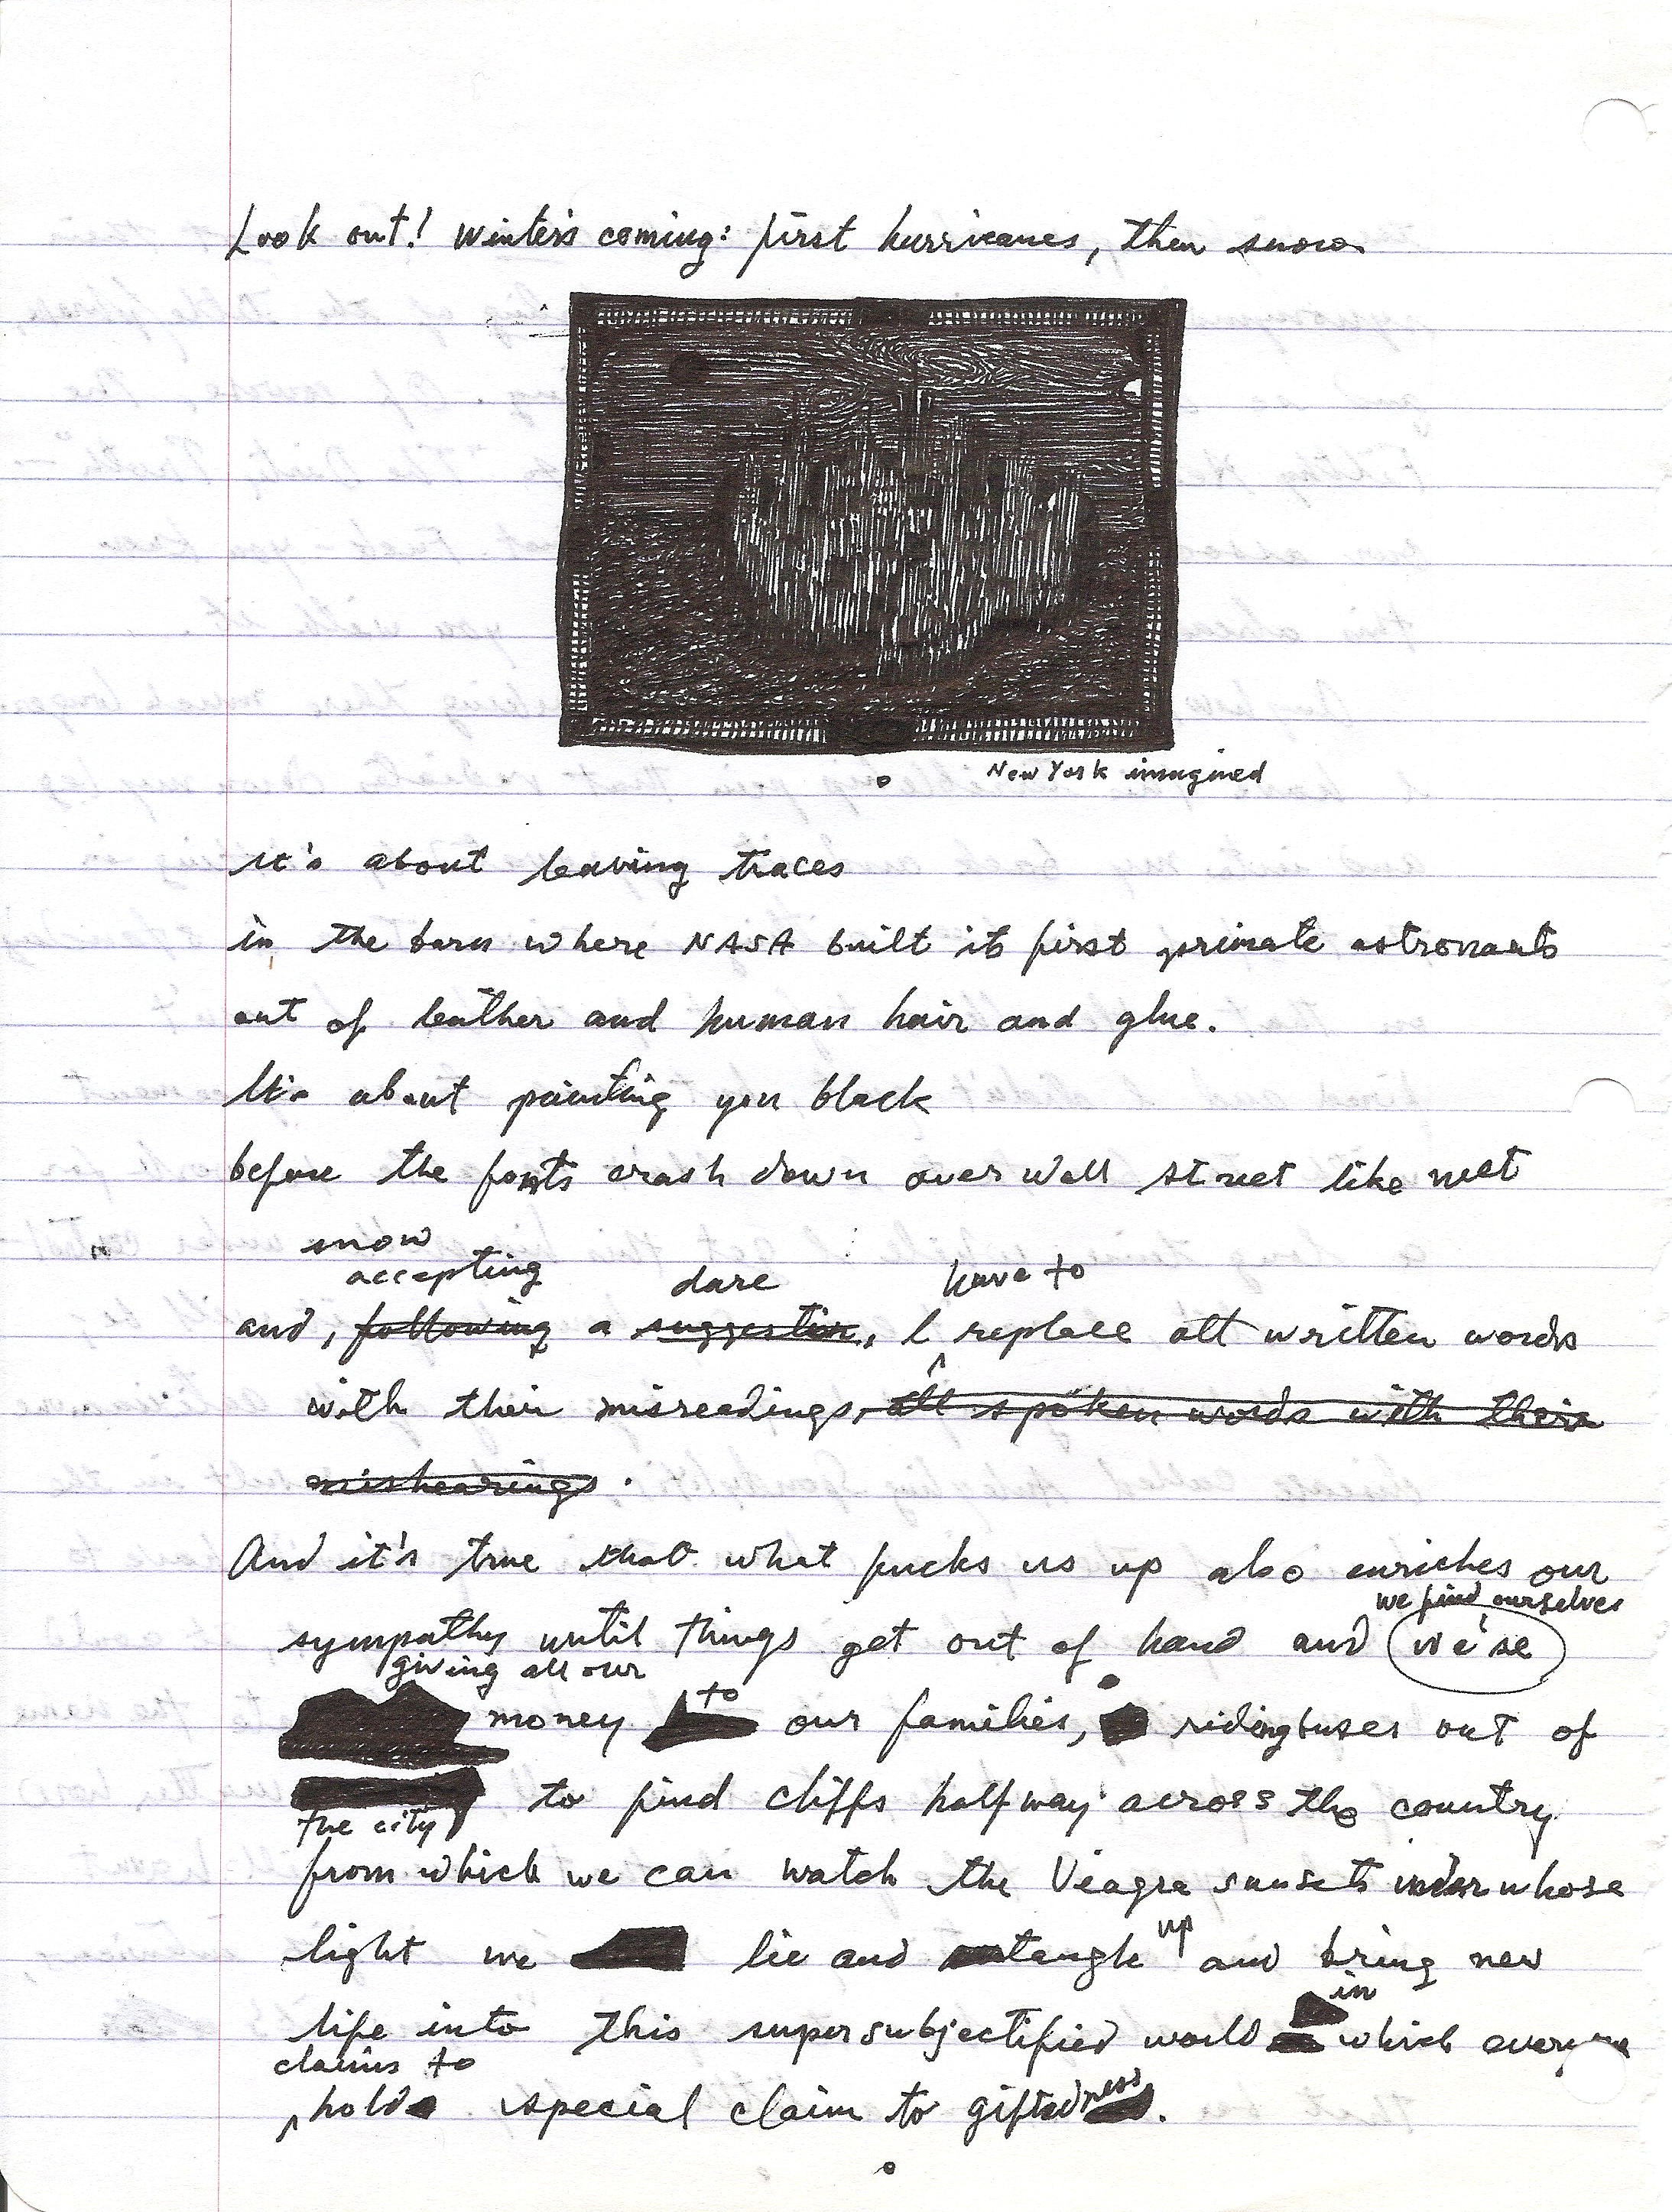 Look out! Winter's coming: first hurricanes, then snow.
New York imagined
It's about leaving traces
in the barn where NASA built its first primate astronauts
out of leather and human hair and glue.
It's about painting you black
before the fonts crash down over Wall Street like wet
snow
accepting dare have to
and, following a suggestion, I replace all written words
with their misreadings, all spoken words with their
mishearings.
And it's true that what fucks us up also enriches our
we find ourselves
sympathy until things get out of hand and we're
giving all our to
money our families, riding buses out of
to find cliffs halfway across the country
the city
from which we can watch the Viagra sunsets under whose
up
light we lie and tangle and bring new
in
life into this supersubjectified world which everyone
claims to
hold special claim to giftedness.